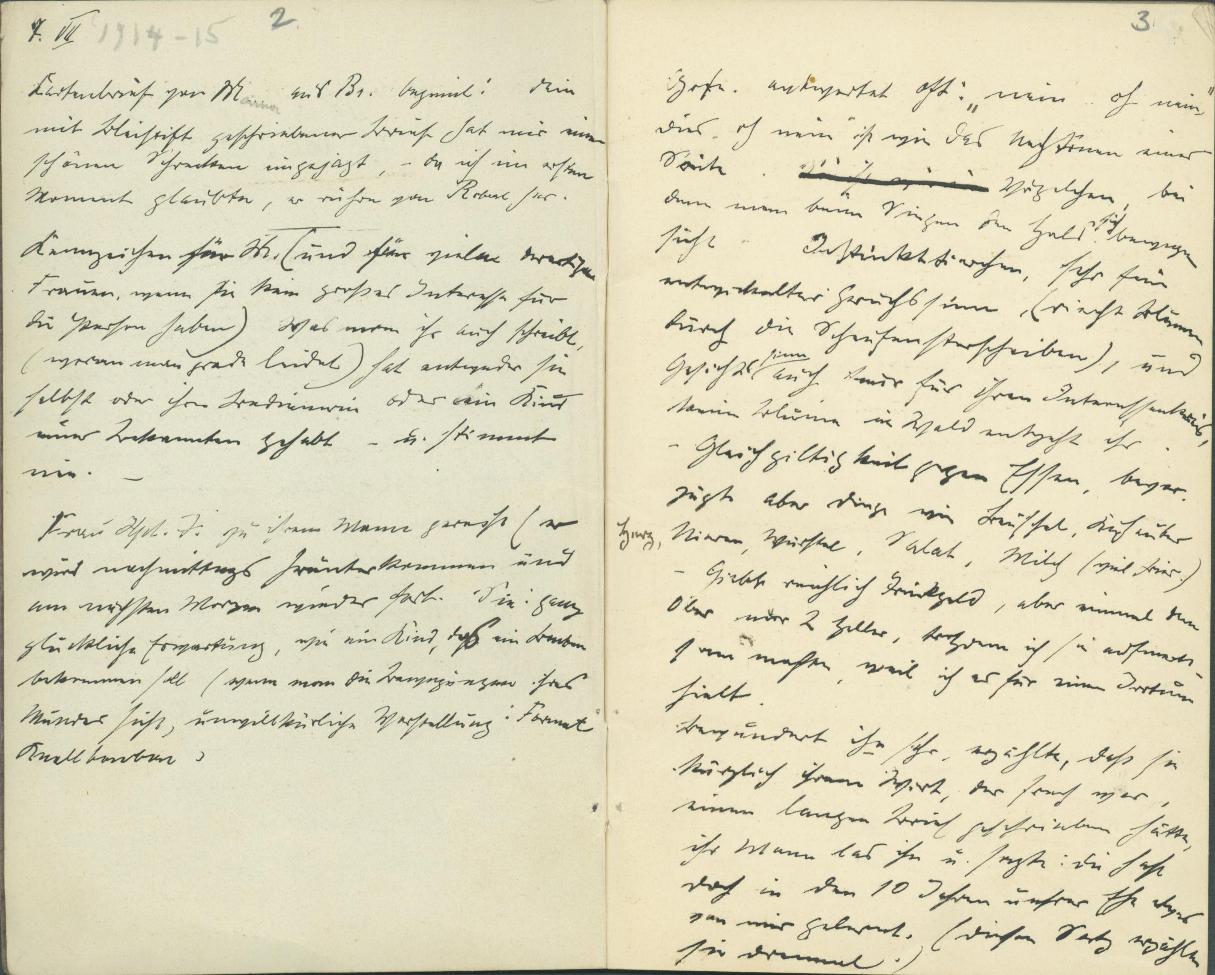 7. VII 1914-15 2
Kartenbrief von M aus Br. beginnt: Dein
mit Bleistift geschriebener Brief hat mir einen
schönen Schrecken eingejagt, – da ich im ersten
Moment glaubte, er rühre von Robert her.
Kennzeichen für M. (und für viele derartige
Frauen, wenn sie kein großes Interesse für
die Person haben) Was man ihr auch schreibt,
(woran man grade leidet) hat entweder sie
selbst oder ihre Bedienerin oder ein Kind
einer Bekannten gehabt – u. stimmt
nie. –
Frau Hpt. F. zu ihrem Mann gereist (er
wird nachmittags herunterkommen und
am nächsten Morgen wieder fort. Sie: ganz
glückliche Erwartung, wie ein Kind, das ein Bonbon
bekommen soll (wenn man die Bewegungen ihres
Mundes sieht, unwillkürliche Vorstellung: Format
Knallbonbon)
3
antwortet oft: „nein oh nein"
dies oh nein ist wie das Nachtönen einer
Saite. Vögelchen, bei
dem man beim Singen den Hals sich bewegen
sieht Instinkttierchen, sehr fein
entwickelter Geruchssinn, (riecht Blumen
durch die Schaufensterscheiben), und
Gesichtssinn auch nur für ihren Interessenkreis,
keine Blume im Wald entgeht ihr.
– Gleichgiltigkeit gegen Essen, bevor-
zugt aber Dinge wie Beuschel, Kuheuter
Herz, Nieren, Würstel, Salat, Milch (viel Bier.)
– Giebt reichlich Trinkgeld, aber einmal dem
Ober nur 2 Heller, trotzdem ich sie aufmerk-
sam machen, weil ich es für einen Irrtum
hielt.
Bewundert ihn sehr, erzählte, daß sie
kürzlich ihrem Wirt, der frech war,
einen langen Brief geschrieben hätte,
ihr Mann las ihn u. sagte: du hast
doch in den 10 Jahren unsrer Ehe etwas
von mir gelernt. (diesen Satz erzählte
sie dreimal.)